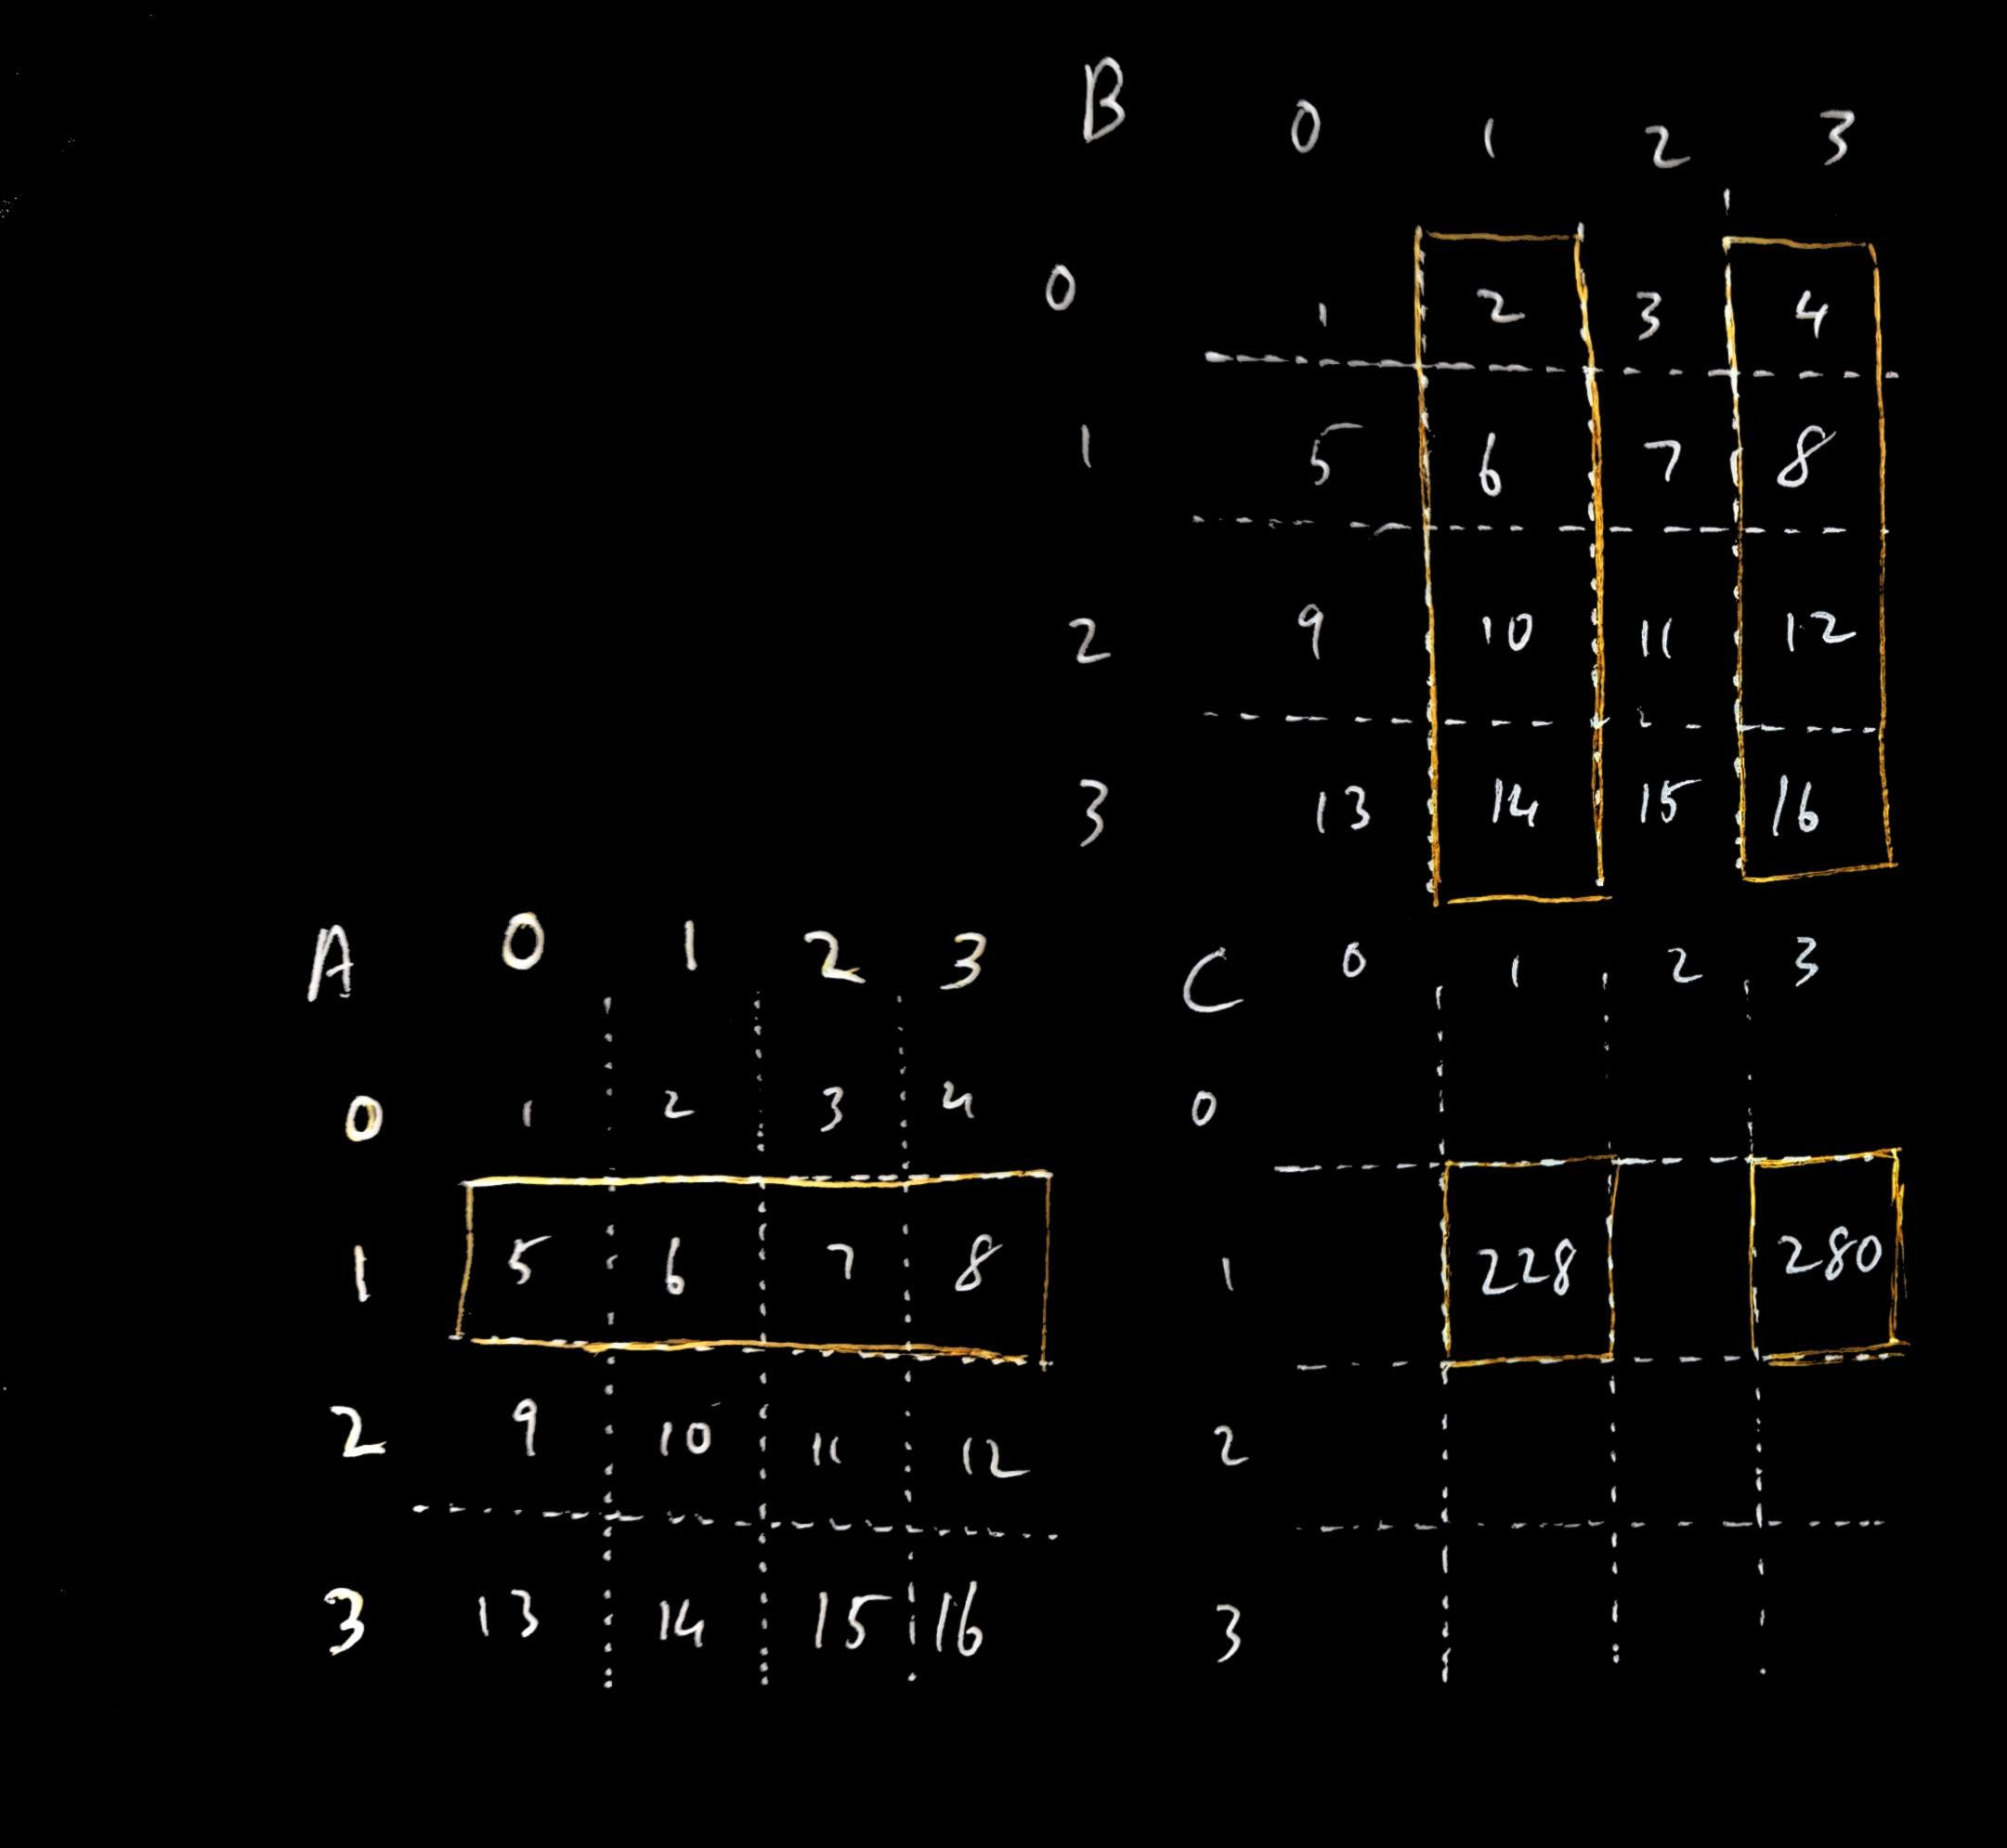 B 0 1 2 3
0 1 2 3 4
1 5 6 7 8
2 9 10 11 12
3 13 14 15 16
A 0 1 2 3
0 1 2 3 4
1 5 6 7 8
2 9 10 11 12
3 13 14 15 16
C 0 1 2 3
0
1 228 280
2
3